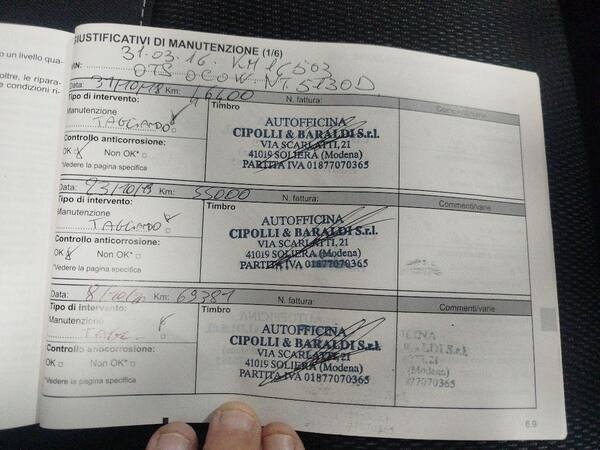 GIUSTIFICATIVI DI MANUTENZIONE (1/6)
31.03.16. KM 16503
VIN:
Data: 31/10/18 Km: 46600 N. fattura: Commenti/varie
Tipo di intervento: Timbro
Manutenzione
TAGLIANDO
Controllo anticorrosione:
OK Non OK*
*Vedere la pagina specifica
AUTOFFICINA
CIPOLLI & BARALDI S.r.l.
VIA SCARLATTI, 21
41019 SOLIERA (Modena)
PARTITA IVA 01877070365
Data: 23/10/19 Km: 55000 N. fattura: Commenti/varie
Tipo di intervento: Timbro
Manutenzione
TAGLIANDO
Controllo anticorrosione:
OK Non OK*
*Vedere la pagina specifica
AUTOFFICINA
CIPOLLI & BARALDI S.r.l.
VIA SCARLATTI, 21
41019 SOLIERA (Modena)
PARTITA IVA 01877070365
Data: Km: 69381 N. fattura: Commenti/varie
Tipo di intervento: Timbro
Manutenzione
TAGL.
Controllo anticorrosione:
OK Non OK*
*Vedere la pagina specifica
AUTOFFICINA
CIPOLLI & BARALDI S.r.l.
VIA SCARLATTI, 21
41019 SOLIERA (Modena)
PARTITA IVA 01877070365
CINA
RALDI S.r.l.
(Modena)
77070365
6.9